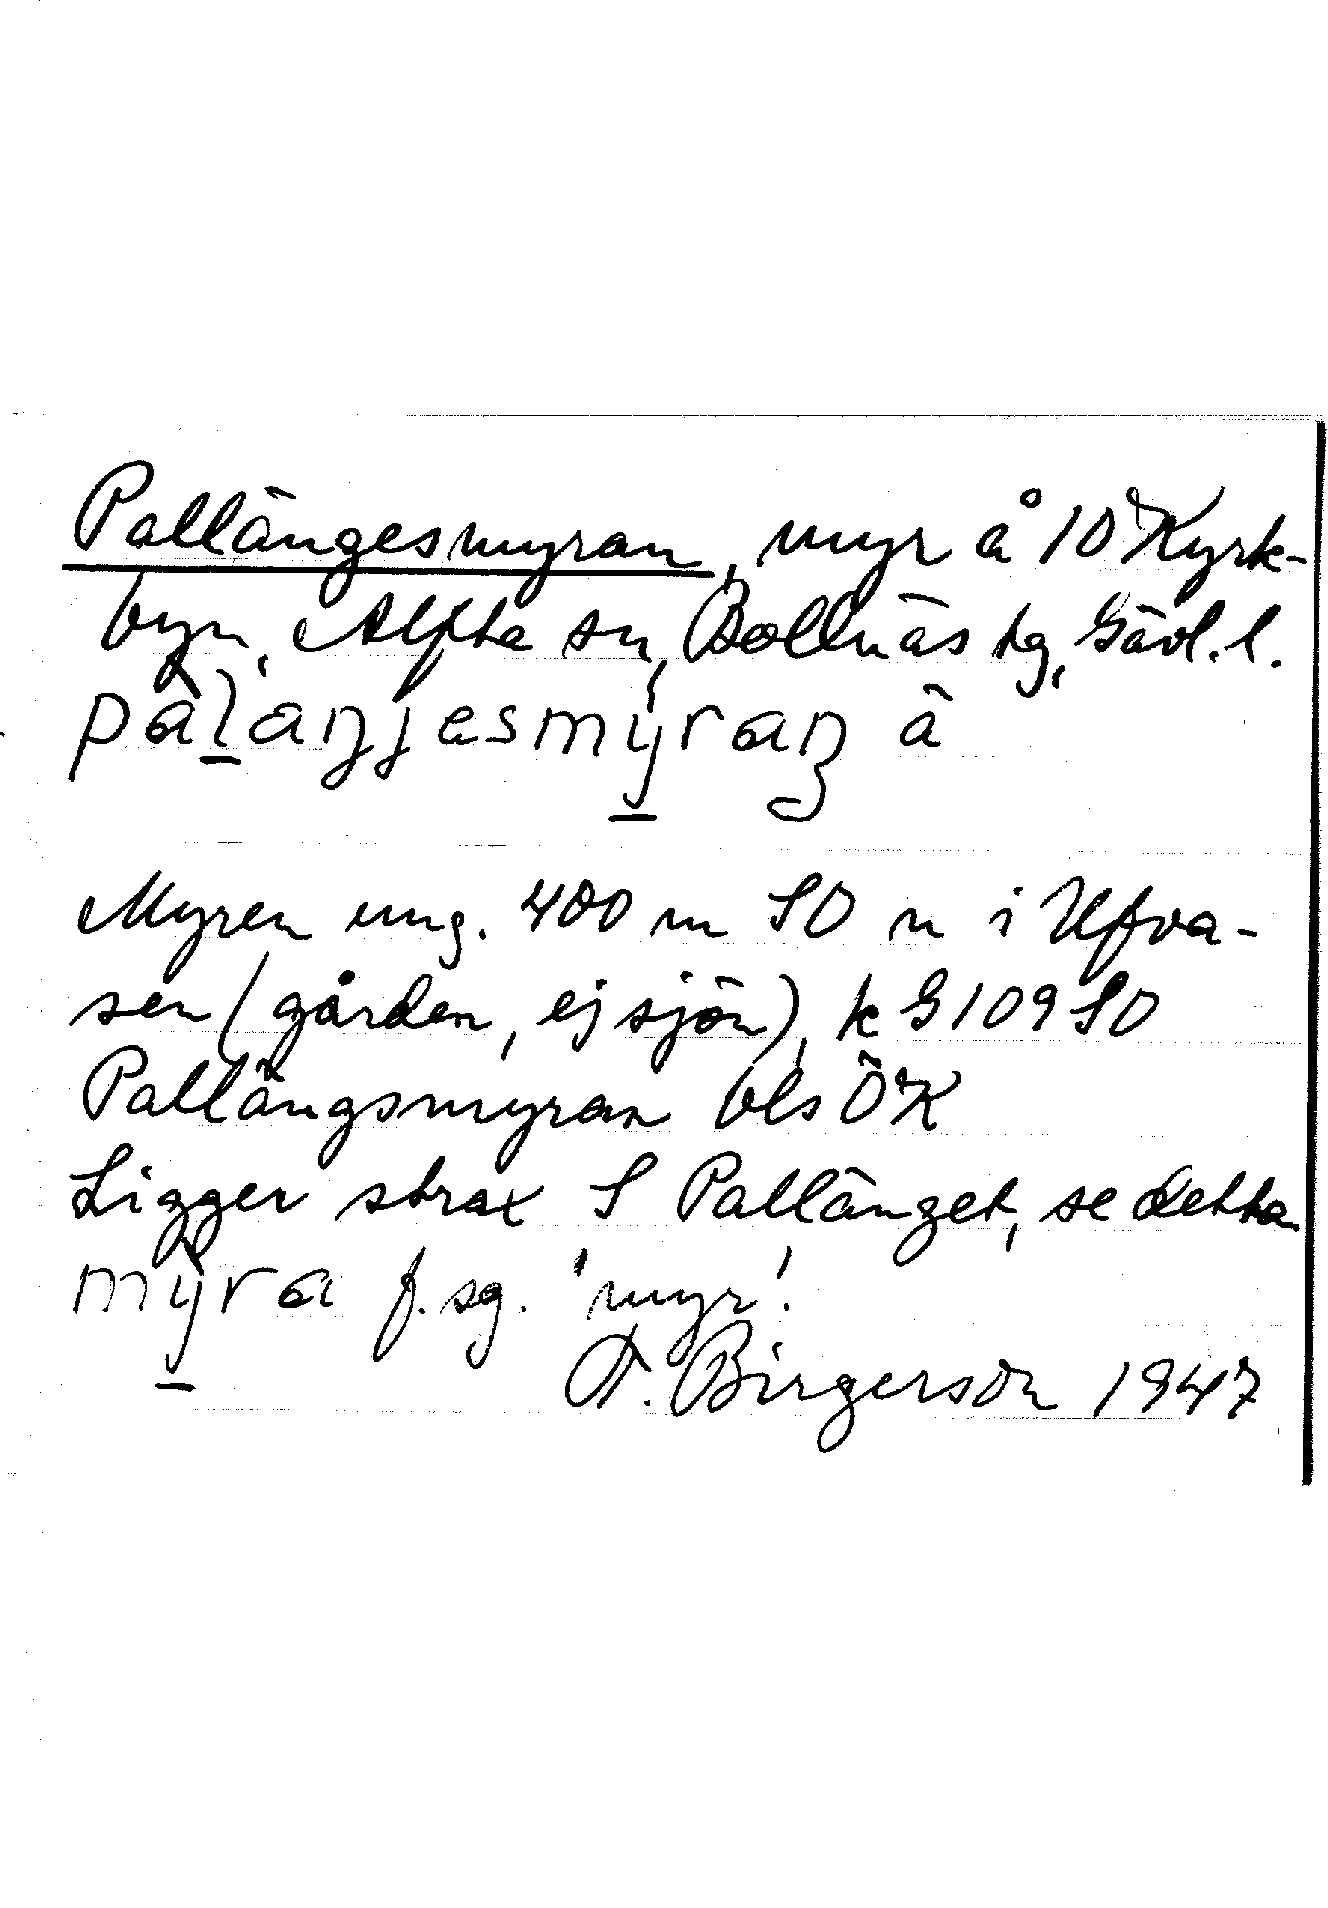 Pallängesmyran, myr å 10 Kyrk-
byn, Alfta sn, Bollnäs tg, Gävl. l.
påḷaŋjesmy̱raŋ å
Myren ung. 400 m SO n i Ulfva-
sen (gården, ej sjön), k G 109 SO
Pallängsmyran bls ÖK
Ligger strax S Pallänget, se detta
my̱ra f. sg. 'myr'.
A. Birgerson 1947